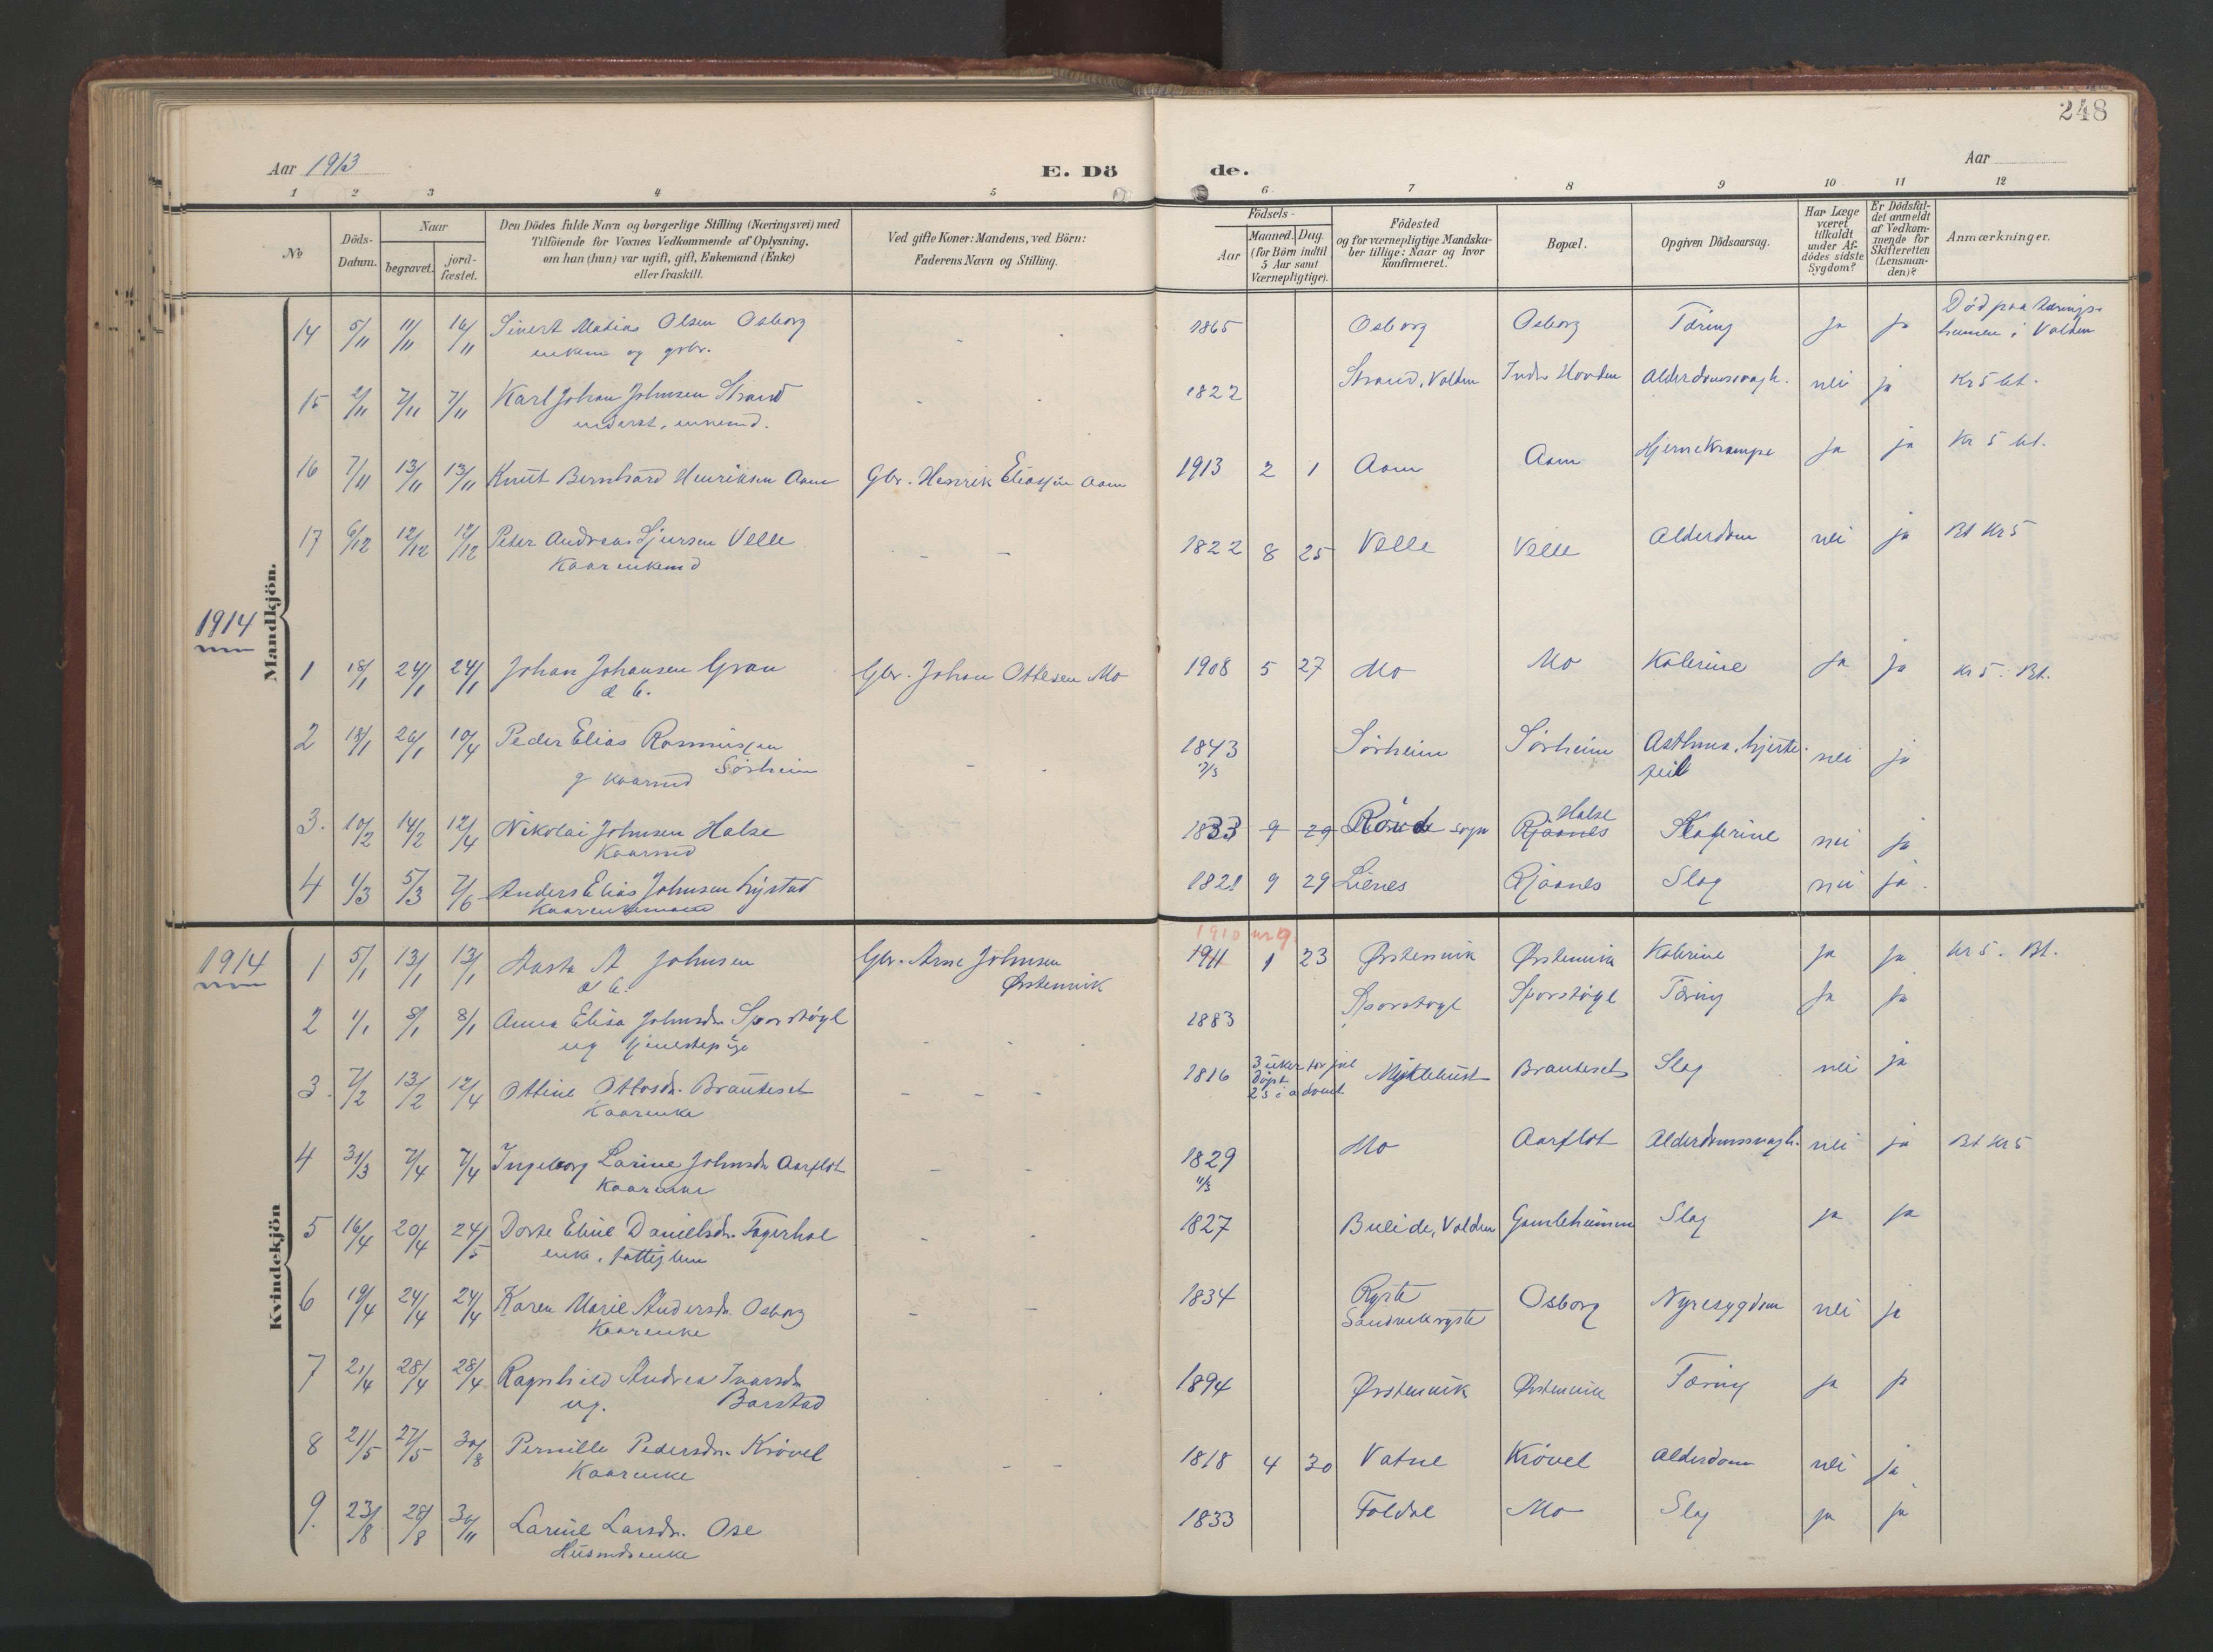 248
Aar 1913
E. Dö
de.
Aar
1 2 3 4 5 6 7 8 9 10 11 12
No
Döds-
Datum.
Naar
begravet.
jord-
fæstet.
Den Dödes fulde Navn og borgerlige Stilling (Næringsvei) med
Tilföiende for Voxnes Vedkommende af Oplysning,
om han (hun) var ugift, gift, Enkemand (Enke)
eller fraskilt.
Ved gifte Koner: Mandens, ved Börn:
Faderens Navn og Stilling.
Födsels-
Aar
Maaned. Dag.
(for Börn indtil
5 Aar samt
Værnepligtige).
Födested
og for værnepligtige Mandska-
ber tillige: Naar og hvor
konfirmeret.
Bopæl.
Opgiven Dödsaarsag.
Har Læge
været
tilkaldt
under Af-
dödes sidste
Sygdom?
Er Dödsfal-
det anmeldt
af Vedkom-
mende for
Skifteretten
(Lensman-
den)?
Anmærkninger.
Mandkjön.
14 5/11 11/11 16/11 Sivert Matias Olsen Osborg - - 1865 Osborg Osborg Tæring ja ja Död paa tærings-
enkem og grbr. heimen i Volden
15 2/11 7/11 7/11 Karl Johan Johnsen Strand - - 1822 Strand, Volden Indre Hovden Alderdomssvagh. nei ja Kr 5 bt.
inderst, enkemd.
16 7/11 13/11 13/11 Knut Bernhard Henriksen Aam Gbr. Henrik Eliassen Aam 1913 2 1 Aam Aam Hjernekrampe ja ja Kr 5 bt.
17 6/12 12/12 12/12 Peter Andreas Sjursen Velle - - 1822 8 25 Velle Velle Alderdom nei ja Bt Kr 5
Kaarenkemd
1914
1 18/1 24/1 24/1 Johan Johansen Gran Gbr. Johan Ottesen Mo 1908 5 27 Mo Mo Kolerine ja ja kr 5. Bt.
d b.
2 18/1 26/1 10/4 Peder Elias Rasmussen - - 1843 Sörheim Sörheim Asthma, hjerte- nei ja
g kaarmd Sörheim feil
3. 10/2 14/2 12/4 Nikolai Johnsen Halse 1833 9 29 sogn Rjaanes Halse nei ja
Kaarmd
4 1/3 5/3 7/6 Anders Elias Johnsen Lystad 1821 9 29 Lienes Rjaanes Slag nei ja.
Kaarenkemand
Kvindekjön
1914
1910 nr 9
1 5/1 13/1 13/1 Aasta A Johnsen Gbr. Arne Johnsen 1911 1 23 Ørstenvik Ørstenvik Kolerine ja ja kr 5. Bt.
d b. Ørstenvik
2 1/1 8/1 8/1 Anna Elisa Johnsdr Sporstöyl - - 1883 Sporstöyl Sporstöyl Tæring ja ja
ug tjenestepige
3. 7/2 13/2 12/4 Ottine Ottosdr. Brauteset - - - 1816 3 uker för jul Myklebust Brauteset Slag nei ja
Kaarenke döpt
2 s i advent
4 31/3 7/4 7/4 Ingeborg Larine Johnsdr Aarflot - - 1829 Mo Aarflot Alderdomssvagh. nei ja Bt Kr 5
Kaarenke
5 16/4 20/4 24/5 Dorte Eline Danielsdr. Fagerhol - - 1827 Bueide, Volden Gamleheimen Slag ja ja
enke, fattiglem
6 19/4 24/4 24/4 Karen Marie Andersdr. Osborg - - 1834 Ryste Osborg Nyresygdom nei ja
Kaarenke
7 21/4 28/4 28/4 Ragnhild Andrea Ivarsdr 1894 Ørstenvik Ørstenvik Tæring ja ja
ug. Barstad
8 21/5 27/5 30/8 Pernille Pedersdr. Krövel - - 1818 4 30 Vatne Krövel Alderdom nei ja
Kaarenke
9. 23/8 28/8 30/11 Larine Larsdr. Ose 1833 Foldal Mo Slag ja ja
Husmdsenke